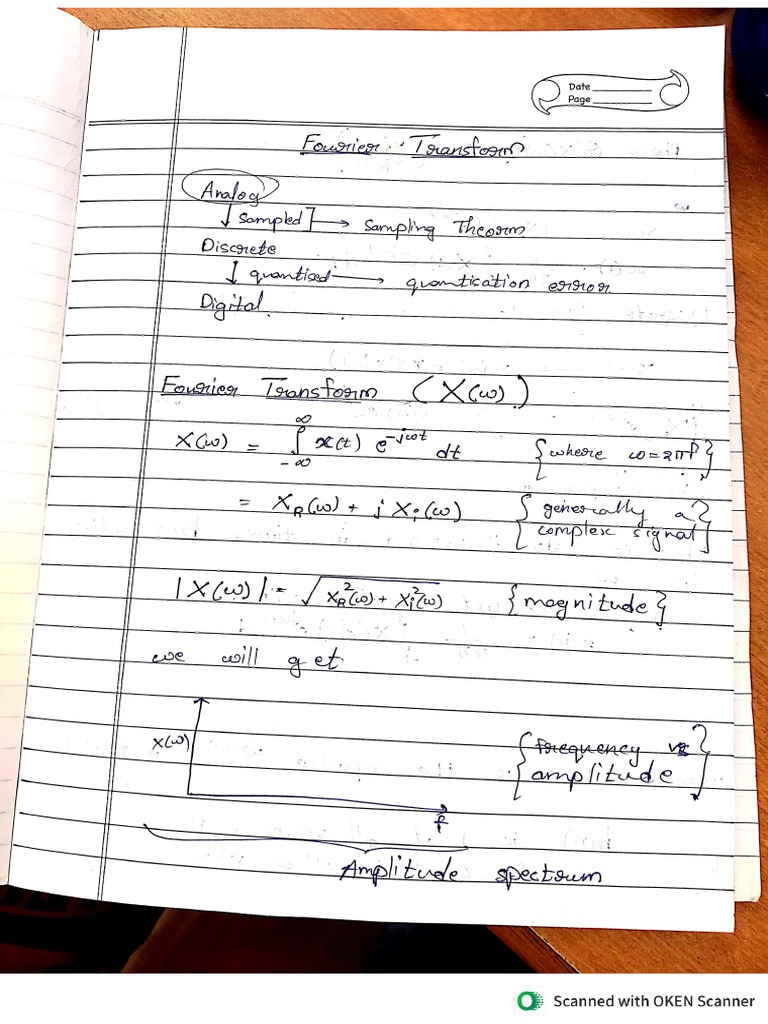 Date
Page
Fourier Transform
Analog
↓ sampled ] → sampling Theorm
Discrete
↓ quantised → quantisation error
Digital.
Fourier Transform (X(ω))
X(ω) = ∫_{-∞}^{∞} x(t) e^{-jωt} dt {where ω=2πf}
= X_R(ω) + j X_i(ω) {generally a
complex signal}
|X(ω)| = √(X_R²(ω) + X_i²(ω)) {magnitude}
we will get
X(ω)
{frequency vs
amplitude}
f
Amplitude spectrum
Scanned with OKEN Scanner